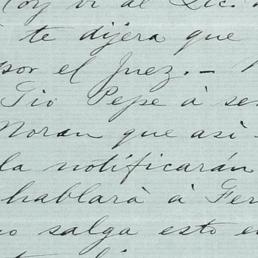 oy vi al Lic.
te dijera que
por el Juez. —
Tio Pepe á se
Moran que así
la notificarán
hablará á Fer
no salga esto e